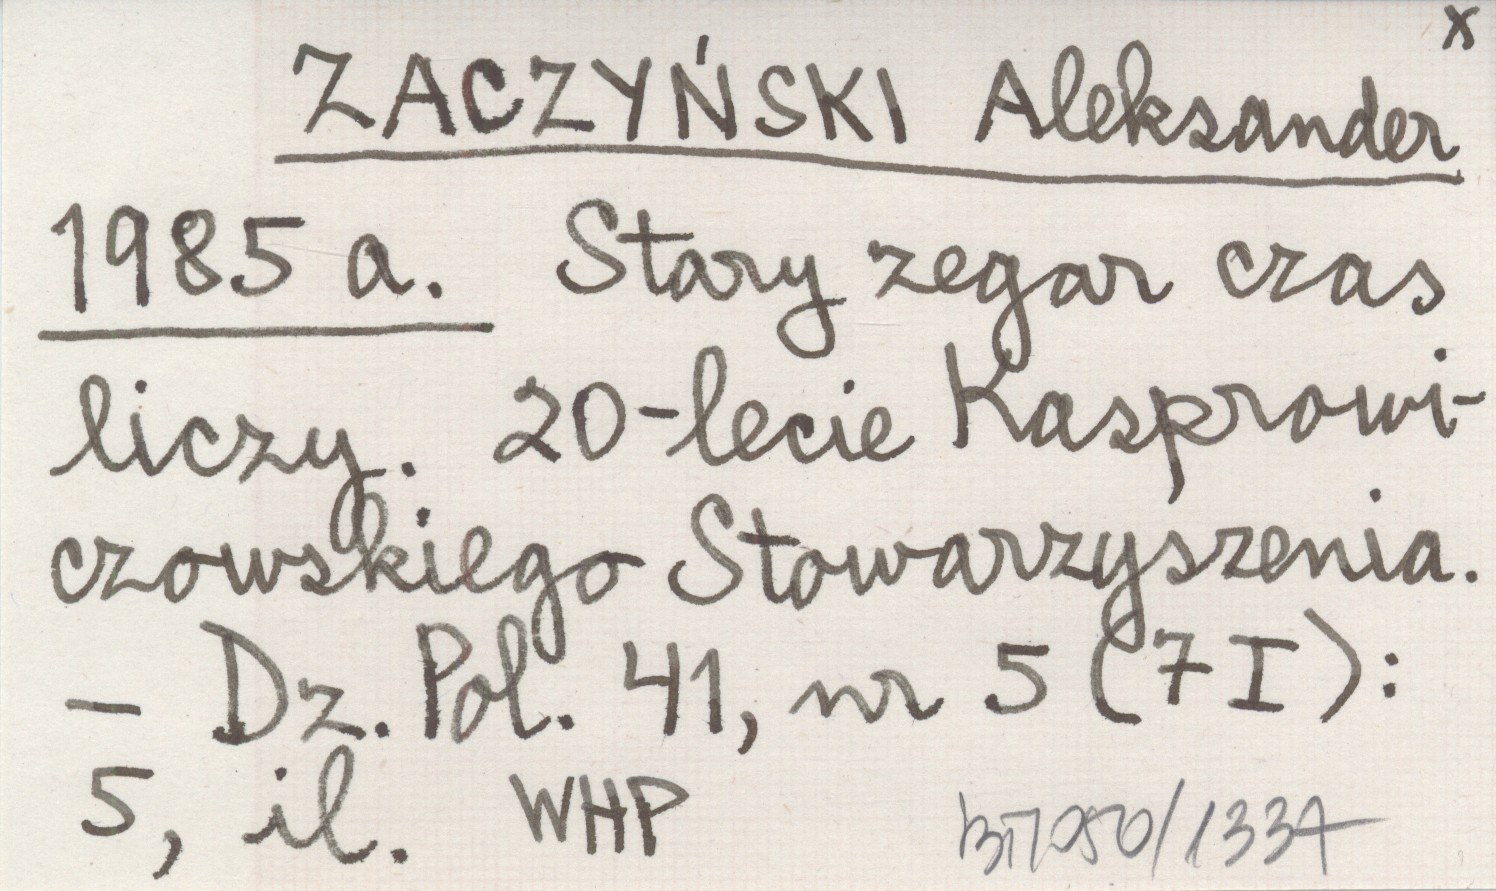 x
ZACZYŃSKI Aleksander
1985 a. Stary zegar czas
liczy. 20-lecie Kasprowi-
czowskiego Stowarzyszenia.
- Dz. Pol. 41, nr 5 (7 I):
5, il. WHP